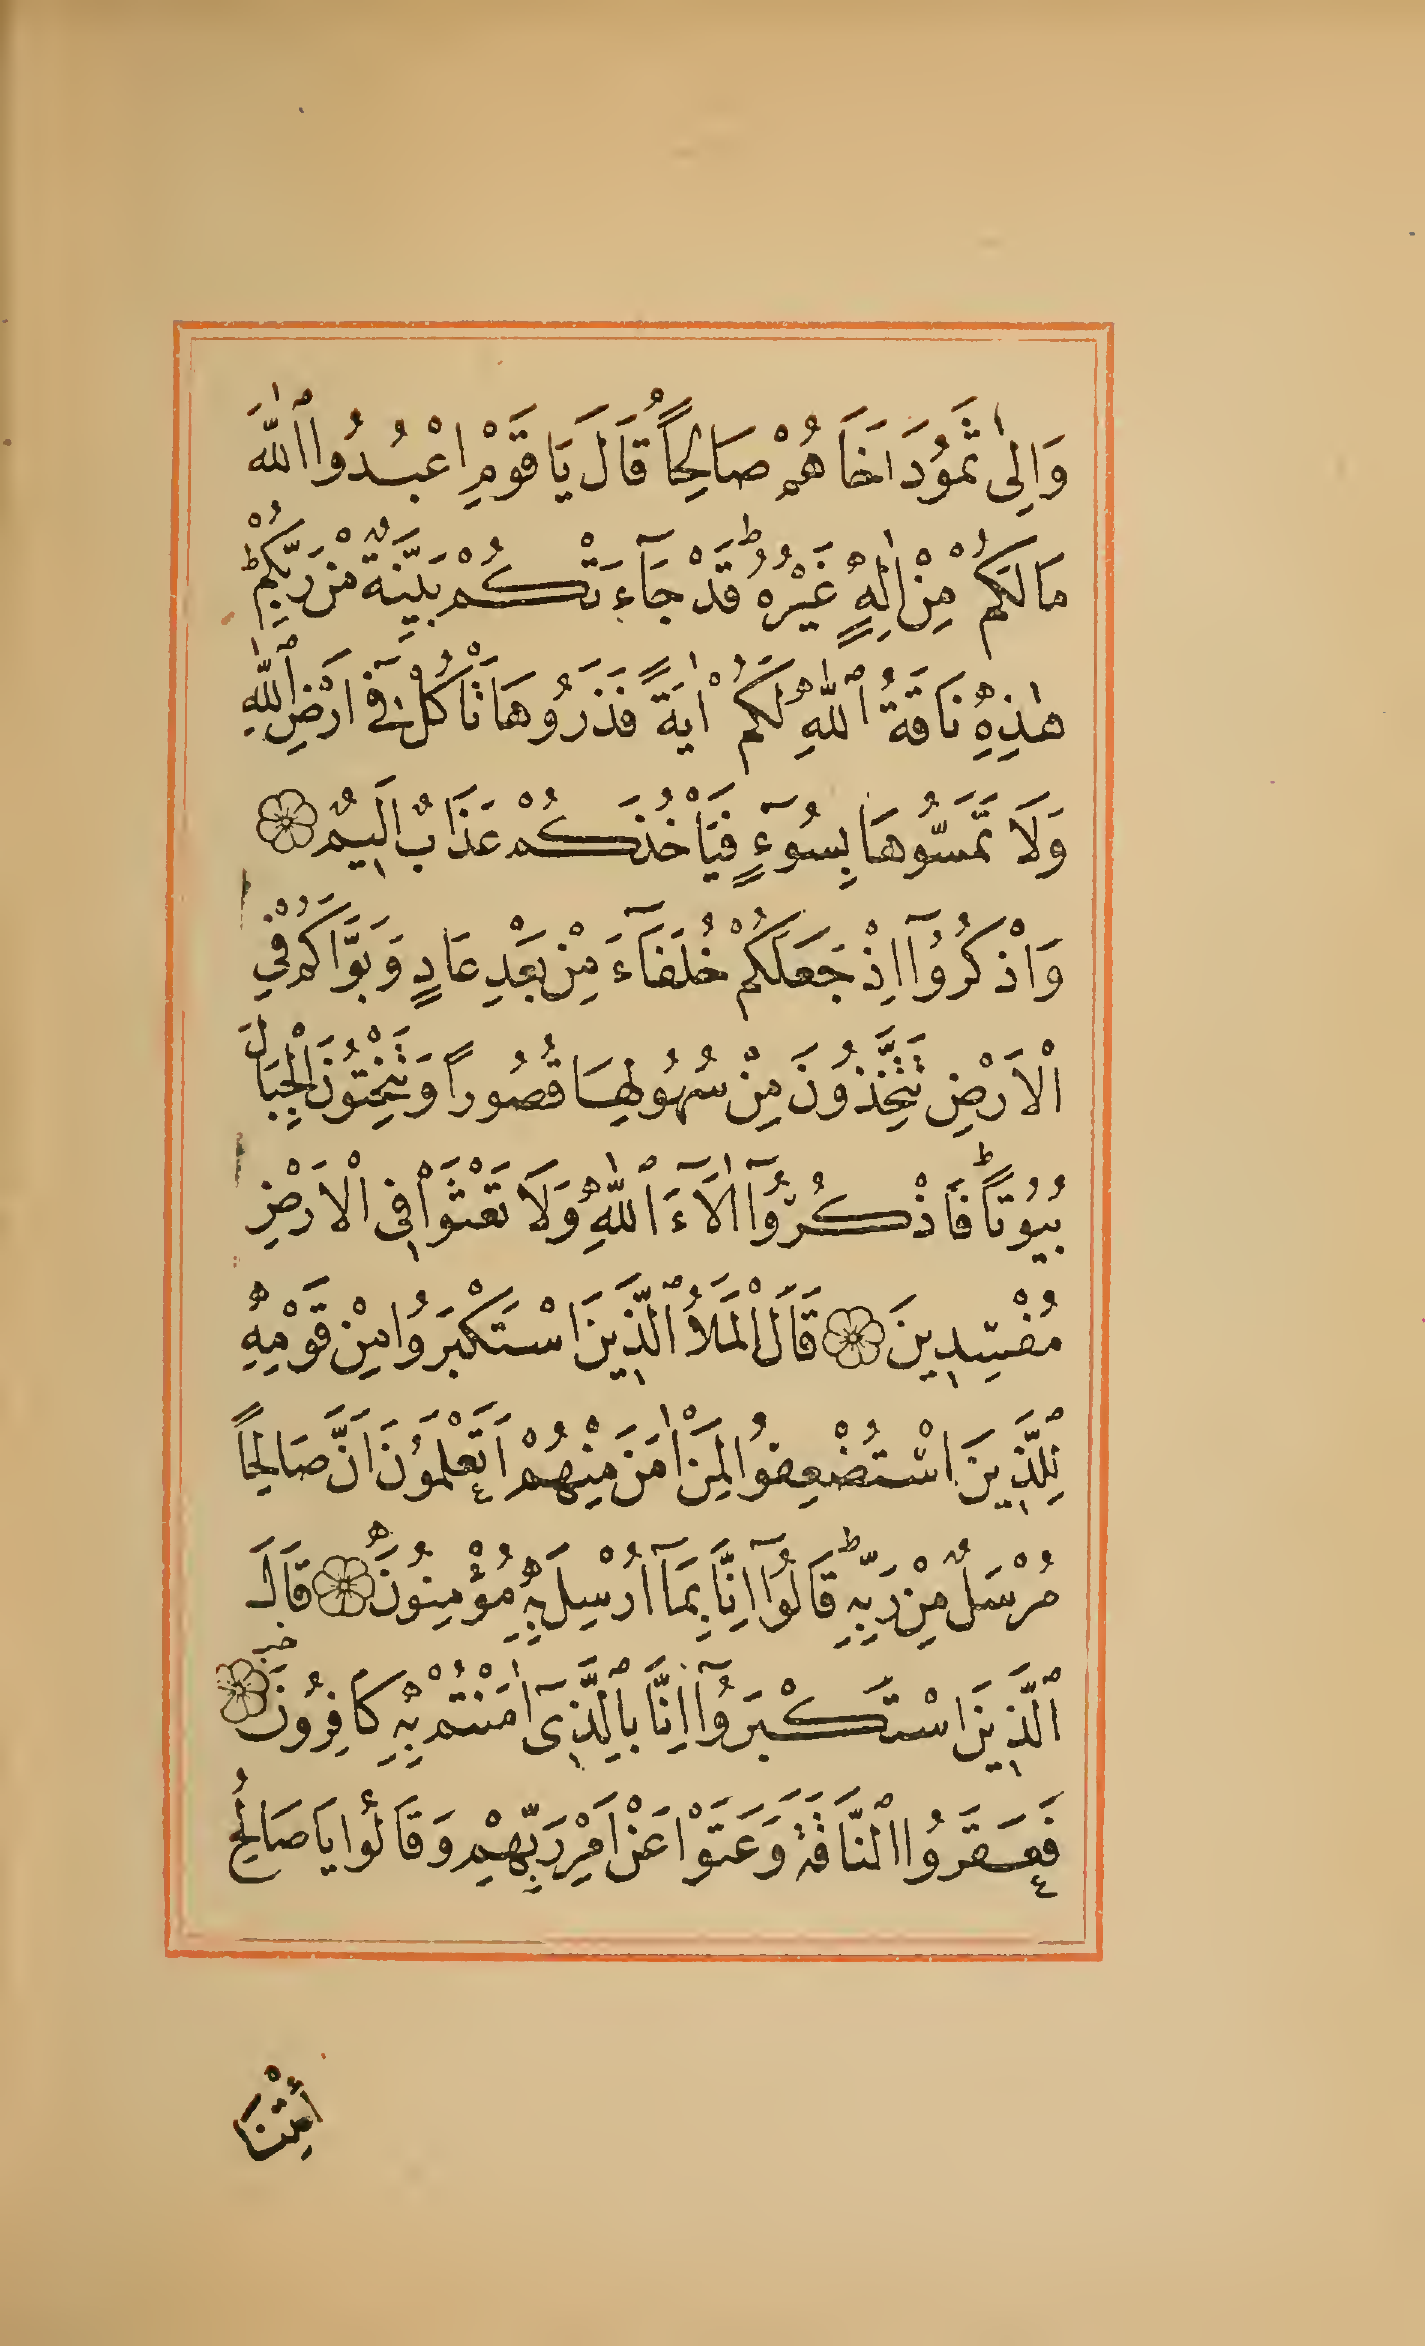 وَاِلٰى ثَمُودَ اَخَاهُمْ صَالِحاًۢ قَالَ يَا قَوْمِ اعْبُدُوا اللّٰهَ
مَا لَكُمْ مِنْ اِلٰهٍ غَيْرُهُۜ قَدْ جَٓاءَتْكُمْ بَيِّنَةٌ مِنْ رَبِّكُمْۜ
هٰذِهِ نَاقَةُ اللّٰهِ لَكُمْ اٰيَةً فَذَرُوهَا تَأْكُلْ فِٓى اَرْضِ اللّٰهِ
وَلَا تَمَسُّوهَا بِسُٓوءٍ فَيَأْخُذَكُمْ عَذَابٌ اَلِيمٌ
وَاذْكُرُٓوا اِذْ جَعَلَكُمْ خُلَفَٓاءَ مِنْ بَعْدِ عَادٍ وَبَوَّاَكُمْ فِي
الْاَرْضِ تَتَّخِذُونَ مِنْ سُهُولِهَا قُصُوراً وَتَنْحِتُونَ الْجِبَالَ
بُيُوتاًۜ فَاذْكُرُٓوا اٰلَٓاءَ اللّٰهِ وَلَا تَعْثَوْا فِى الْاَرْضِ
مُفْسِدِينَ قَالَ الْمَلَاُ الَّذِينَ اسْتَكْبَرُوا مِنْ قَوْمِهِ
لِلَّذِينَ اسْتُضْعِفُوا لِمَنْ اٰمَنَ مِنْهُمْ اَتَعْلَمُونَ اَنَّ صَالِحاً
مُرْسَلٌ مِنْ رَبِّهِۜ قَالُٓوا اِنَّا بِمَٓا اُرْسِلَ بِهِ مُؤْمِنُونَ قَالَ
الَّذِينَ اسْتَكْبَرُٓوا اِنَّا بِالَّذِٓى اٰمَنْتُمْ بِهِ كَافِرُونَ
فَعَقَرُوا النَّاقَةَ وَعَتَوْا عَنْ اَمْرِ رَبِّهِمْ وَقَالُوا يَا صَالِحُ
ائْتِنَا